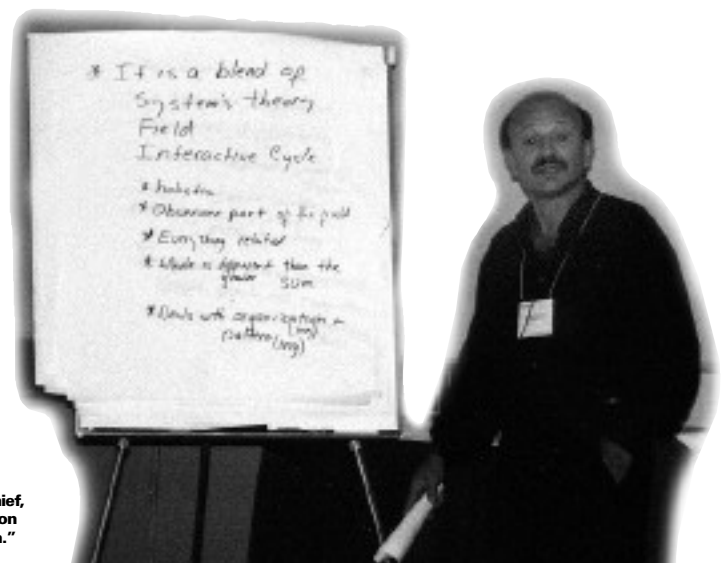 * It is a blend of
System's theory
Field
Interactive Cycle
* holistic
* Observer part of the field
* Everything related
* Whole is different than the
greater sum
* Deals with organization +
(ing)
pattern (ing)
hief,
on
n."